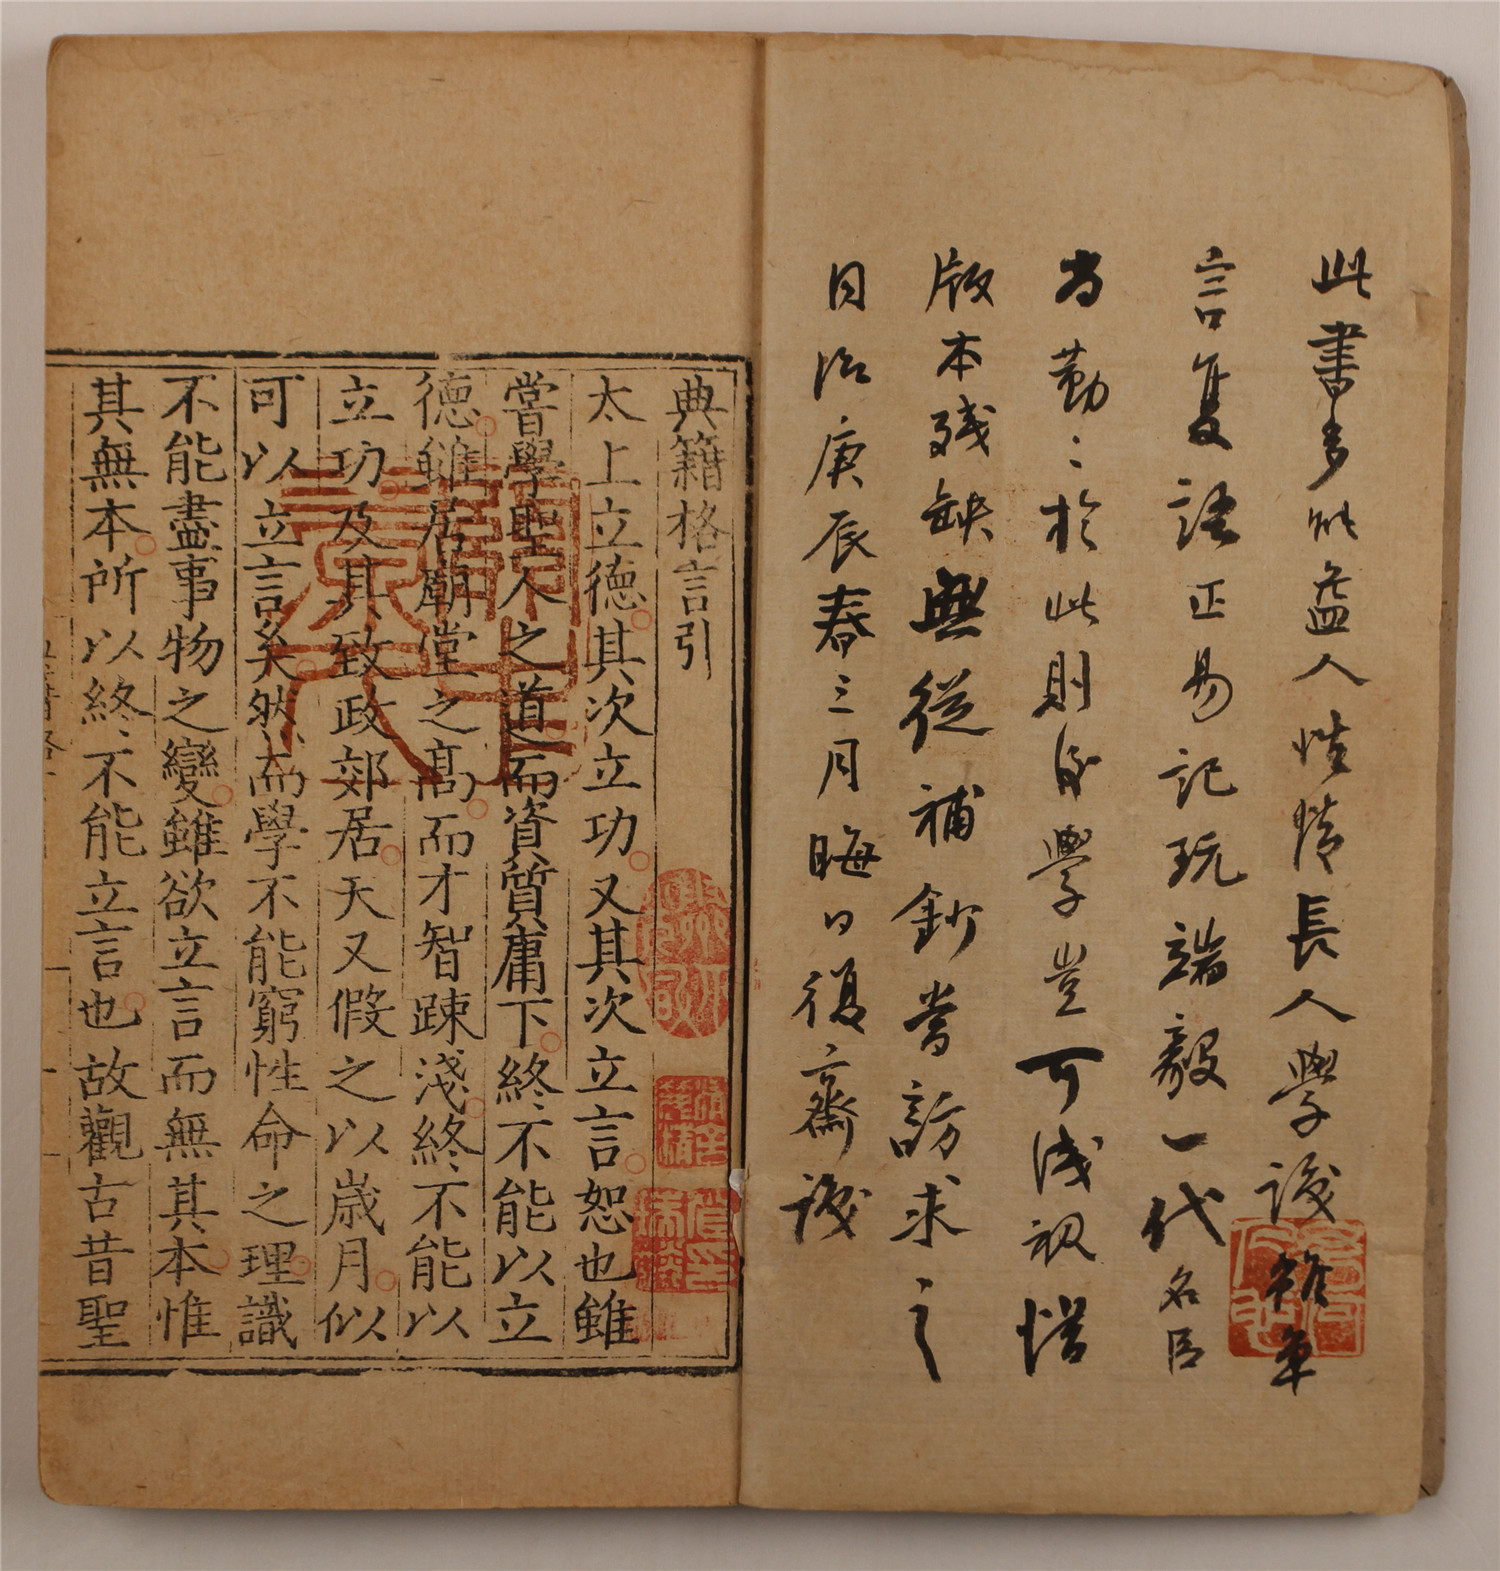 此書多所益人性情長人學識雖单
言复語正易記玩端毅一代名臣
尚勤〻於此則自學豈可淺視惜
版本殘缺無從補鈔當訪求之
同治庚辰春三月晦日復齋識
典籍格言引
太上立德其次立功又其次立言恕也雖
嘗學聖人之道而資質庸下終不能以立
德雖居廟堂之高而才智踈淺終不能以
立功及其致政郊居天又假之以歲月似
可以立言矣然而學不能窮性命之理識
不能盡事物之變雖欲立言而無其本惟
其無本所以終不能立言也故觀古昔聖